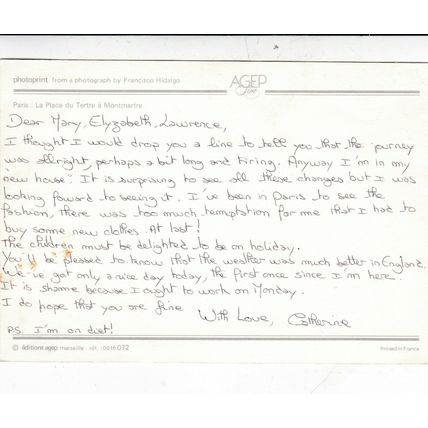 photoprint from a photograph by Francisco Hidalgo
AGEP
Paris : La Place du Tertre à Montmartre
Dear Mary, Elyzabeth, Lawrence,
I thought I would drop you a line to tell you that the journey
was allright, perhaps a bit long and tiring. Anyway I'm in my
"new house". It is surprising to see all these changes but I was
looking foward to seeing it. I've been in Paris to see the
fashion, there was too much temptation for me that I had to
buy some new clothes. At last!
The children must be delighted to be on holiday.
You'll be pleased to know that the weather was much better in England.
We've got only a nice day today, the first once since I'm here.
It is shame because I ought to work on Monday.
I do hope that you are fine
With Love, Catherine
PS. I'm on diet!
© éditions agep marseille - réf. : 0016 072
Printed in France